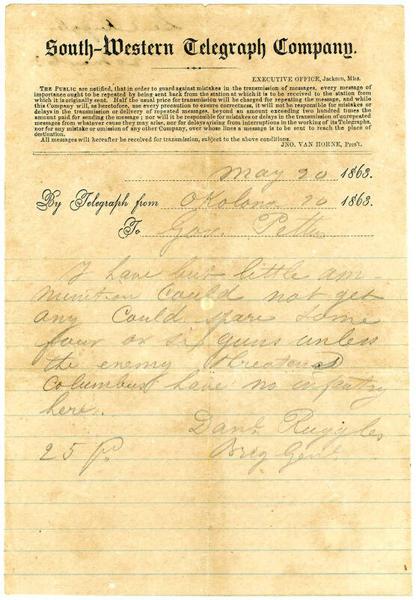 South-Western Telegraph Company.
EXECUTIVE OFFICE, Jackson, Miss.
THE PUBLIC are notified, that in order to guard against mistakes in the transmission of messages, every message of
importance ought to be repeated by being sent back from the station at which it is to be received to the station from
which it is originally sent. Half the usual price for transmission will be charged for repeating the message, and while
this Company will, as heretofore, use every precaution to ensure correctness, it will not be responsible for mistakes or
delays in the transmission or delivery of repeated messages, beyond an amount exceeding two hundred times the
amount paid for sending the message; nor will it be responsible for mistakes or delays in the transmission of unrepeated
messages from whatever cause they may arise, nor for delays arising from interruptions in the working of its Telegraphs,
nor for any mistake or omission of any other Company, over whose lines a message is to be sent to reach the place of
destination.
All messages will hereafter be received for transmission, subject to the above conditions.
JNO. VAN HORNE, Pres't.
May 20 1863.
By Telegraph from Okolona 20 1863.
To Gen. Pettus
I have but little am-
munition could not get
any could spare some
four or six guns unless
the enemy threatens
Columbus have no infantry
here.
Danl Ruggles
25 Brig Genl